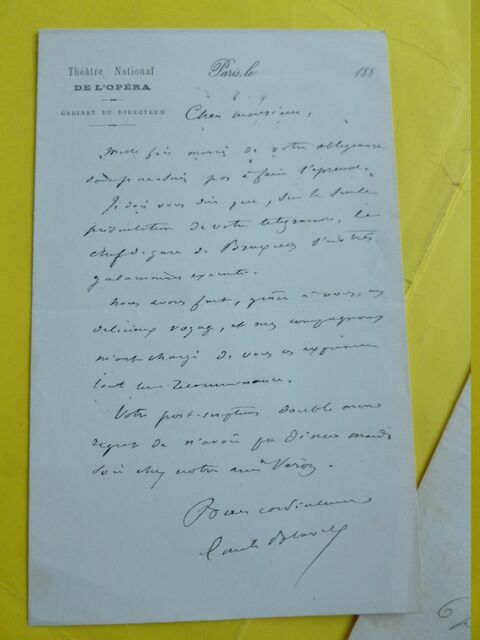 Théâtre National
DE L'OPÉRA
CABINET DU DIRECTEUR
Paris, le 188
Cher monsieur,
Mille fois merci de votre obligeance
pas à faire l'épreuve.
Je dois vous dire que, sur la seule
présentation de votre télégramme, le
chef de gare de Bruxelles s'est très
galamment exécuté.
Nous avons fait, grâce à vous, un
délicieux voyage, et mes compagnons
m'ont chargé de vous en exprimer
toute leur reconnaissance.
Votre post-scriptum double mon
regret de n'avoir pu dîner mardi
soir chez notre ami
Bien cordialement